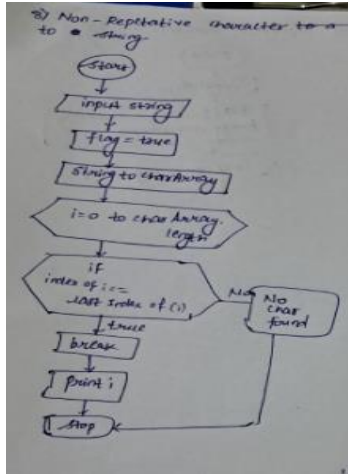 8) Non-Repetative character to a
to string
Start
input string
flag = true
String to charArray
i=0 to charArray.
length
if
index of i ==
last index of (i)
No
No
char
found
true
break
print i
stop